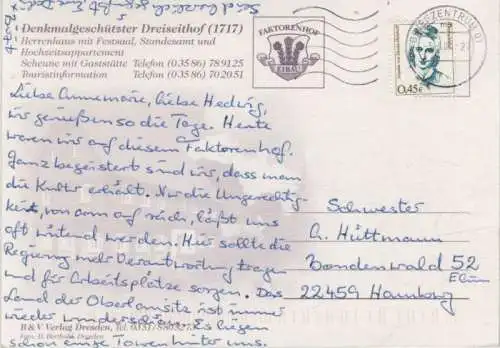 Denkmalgeschützter Dreiseithof (1717)
Herrenhaus mit Festsaal, Standesamt und
Hochzeitsappartement
Scheune mit Gaststätte Telefon (0 35 86) 78 91 25
Touristinformation Telefon (0 35 86) 70 20 51
FAKTORENHOF
EIBAU
BRIEFZENTRUM 01
0,45€
Liebe Annemarie, liebe Hedwig,
wir genießen so die Tage. Heute
waren wir auf diesem Faktorenhof.
Ganz begeistert sind wir, dass man
die Kultur erhält. Nur die Ungerechtig-
keit, von arm auf reich, läßt uns
oft wütend werden. Hier sollte die
Regierung mehr Verantwortung tragen
und für Arbeitsplätze sorgen. Das
Land der Oberlausitz ist immer
wieder wunderschön. Es liegen
schon einige Touren hinter uns.
Schwester
A. Hüttmann
Bondenwald 52
Elim
22459 Hamburg
B & V Verlag Dresden, Tel.
Foto: D. Berthold, Dresden